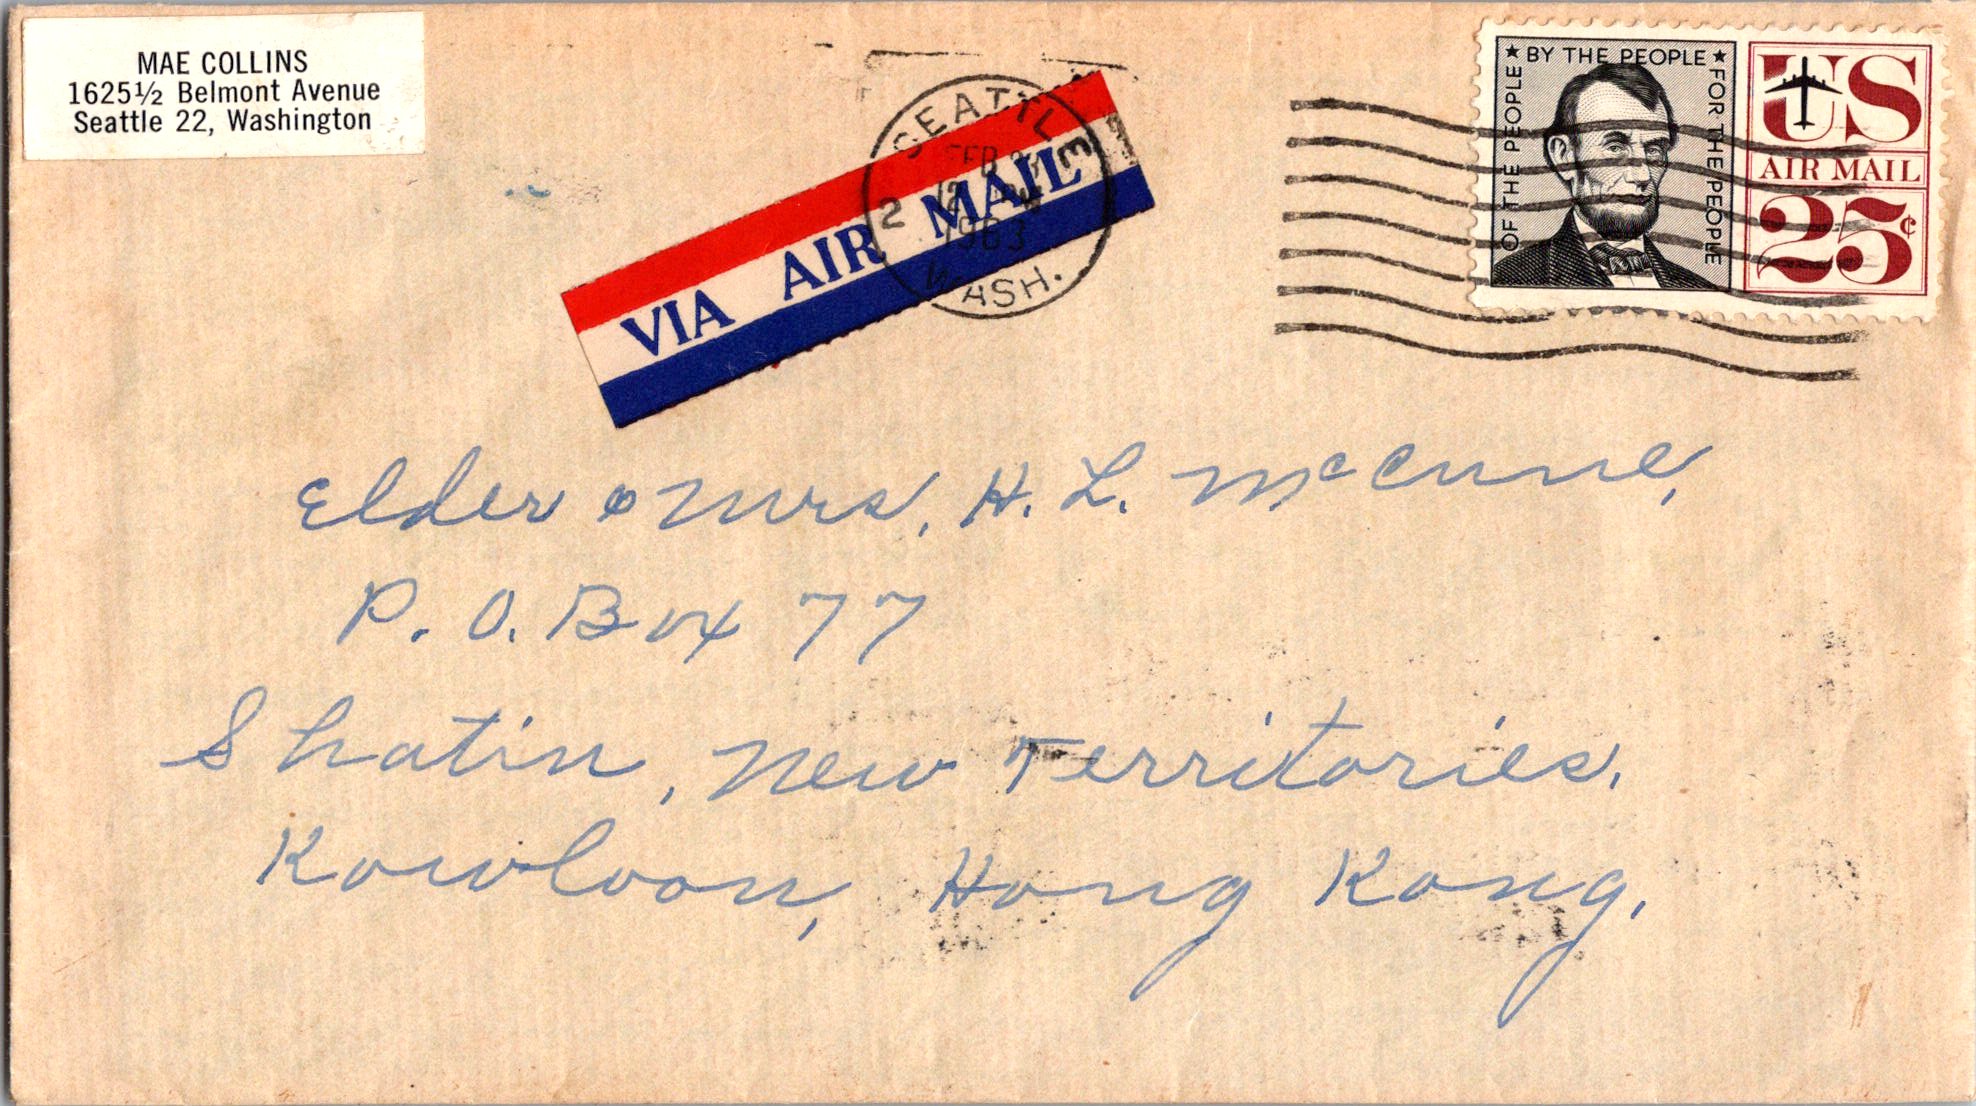 MAE COLLINS
1625½ Belmont Avenue
Seattle 22, Washington
VIA AIR MAIL
SEATTLE
2
FEB
12
1963
WASH.
OF THE PEOPLE ★ BY THE PEOPLE ★ FOR THE PEOPLE
US
AIR MAIL
25¢
Elder & Mrs. H. L. McCune,
P. O. Box 77
Shatin, New Territories,
Kowloon, Hong Kong,